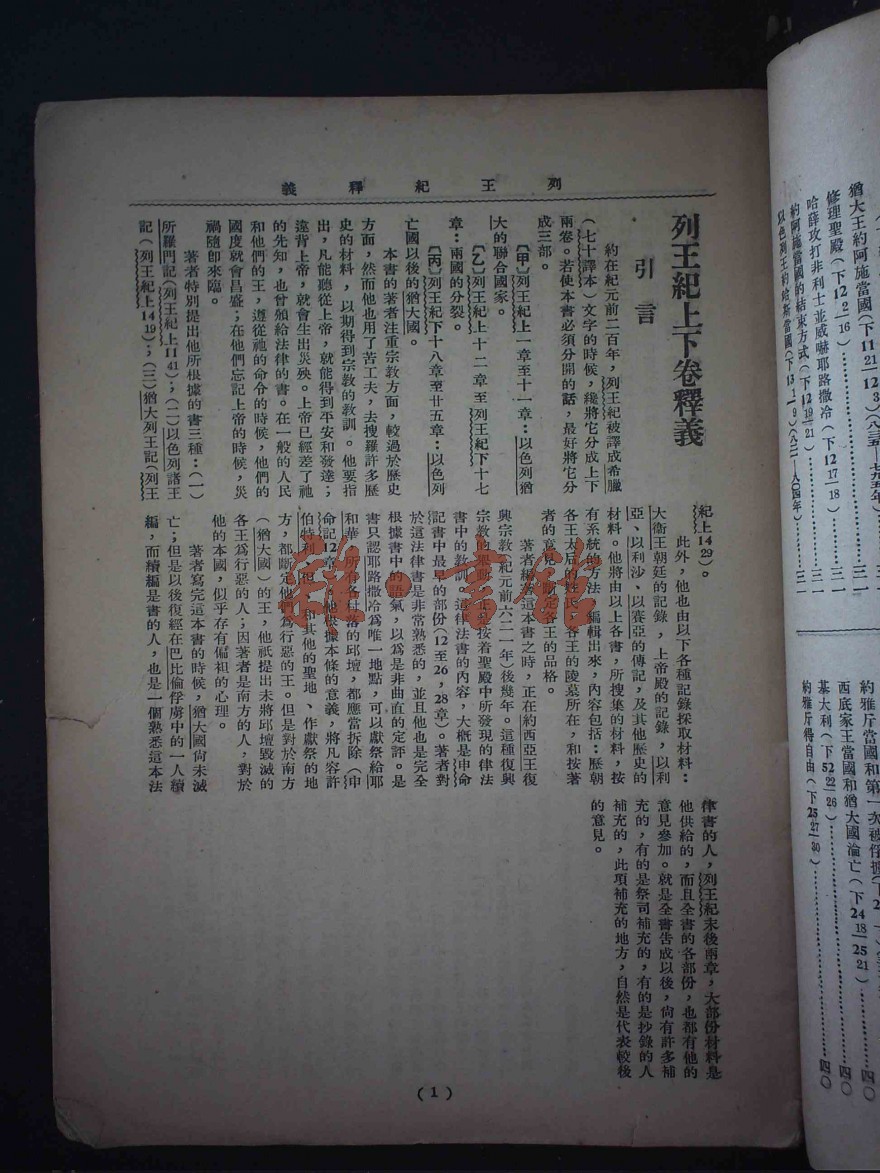 列王紀釋義
列王紀上下卷釋義
引言
約在紀元前二百年，列王紀被譯成希臘
（七十譯本）文字的時候，纔將它分成上下
兩卷。若使本書必須分開的話，最好將它分
成三部。
〔甲〕列王紀上一章至十一章：以色列猶
大的聯合國家。
〔乙〕列王紀上十二章至列王紀下十七
章：兩國的分裂。
〔丙〕列王紀下十八章至廿五章：以色列
亡國以後的猶大國。
本書的著者注重宗教方面，較過於歷史
方面，然而他也用了苦工夫，去搜羅許多歷
史的材料，以期得到宗教的教訓。他要指
出，凡能聽從上帝，就能得到平安和發達；
違背上帝，就會生出災殃。上帝已經差了祂
的先知，也曾頒給法律的書。在一般的人民
和他們的王，遵從祂的命令的時候，他們的
國度就會昌盛；在他們忘記上帝的時候，災
禍隨卽來臨。
著者特別提出他所根據的書三種：（一）
所羅門記（列王紀上11 41）；（二）以色列諸王
記（列王紀上14 19）；（三）猶大列王記（列王
紀上14 29）。
此外，他也由以下各種記錄採取材料：
大衛王朝廷的記錄，上帝殿的記錄，以利
亞、以利沙、以賽亞的傳記，及其他歷史的
材料。他將由以上各書，所搜集的材料，按
有系統的方法，編輯出來，內容包括：歷朝
各王太后的姓氏，各王的陵墓所在，和按著
者的意見，斷定各王的品格。
著者編著這本書之時，正在約西亞王復
興宗教（紀元前六二一年）後幾年。這種復興
宗教的舉動，正是按着聖殿中所發現的律法
書中的教訓。這律法書的內容，大槪是申命
記書中最早的部份（12至26，28章）。著者對
於這法律書是非常熟悉的，並且他也是完全
根據書中的語氣，以爲是非曲直的定評。是
書只認耶路撒冷爲唯一地點，可以獻祭給耶
和華，所有各村落的邱壇，都應當拆除（申
命記12章），他根據本條的意義，將凡容許
伯特利、但、和其他的聖地、作獻祭的地
方，都斷定他們爲行惡的王。但是對於南方
（猶大國）的王，他祇提出未將邱壇毀滅的
各王爲行惡的人；因著者是南方的人，對於
他的本國，似乎存有偏袒的心理。
著者寫完這本書的時候，猶大國尙未滅
亡；但是以後復經在巴比倫俘虜中的一人續
編，而續編是書的人，也是一個熟悉這本法
律書的人，列王紀末後兩章，大部份材料是
他供給的，而且全書的各部份，也都有他的
意見參加。就是全書告成以後，尙有許多補
充的，有的是祭司補充的，有的是抄錄的人
補充的，此項補充的地方，自然是代表較後
的意見。
（1）
猶大王約阿施當國（下11 21—12 3）
修理聖殿（下12 2—16）……三一
哈薛攻打非利士並威嚇耶路撒冷（下12 17—18）……三一
約阿施當國的結束方式（下12 19—21）……三一
約雅斤當國和第一次被俘擄
西底家王當國和猶大國淪亡（下24 18—25 21）……四〇
基大利（下25 22—26）……四〇
約雅斤得自由（下25 27—30）……四〇
雜·書館